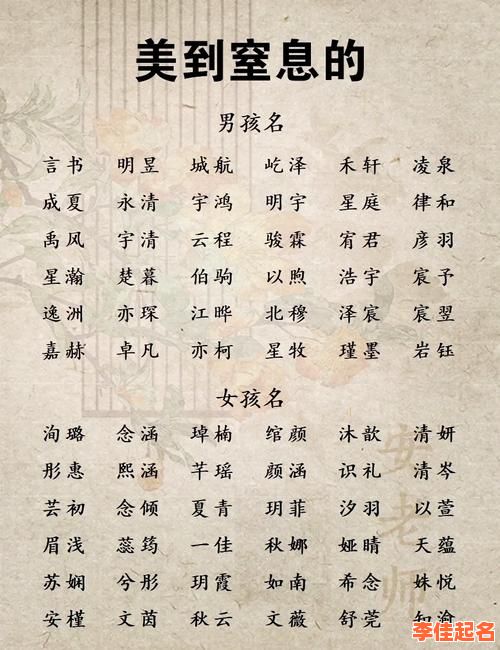 美到窒息的
男孩名
言书 明昱 城航 屹泽 禾轩 凌泉
成夏 永清 宇鸿 明宇 星庭 律和
禹风 宇清 云程 骏霖 宥君 彦羽
星瀚 楚暮 伯驹 以煦 浩宇 宸予
逸洲 亦琛 江晔 北穆 泽宸 宸翌
嘉赫 卓凡 亦柯 星牧 瑾墨 岩钰
女孩名
洵璐 念涵 琸楠 绾颜 沐歆 清妍
彤惠 熙涵 芊瑶 颜涵 识礼 清岑
芸初 念倾 夏青 玥菲 汐羽 以萱
眉浅 蕊筠 一佳 秋娜 娅晴 天蕴
苏娴 兮彤 玥霞 如南 希念 姝悦
安槿 文茵 秋云 文薇 舒莞 知渝
安老师
李佳起名